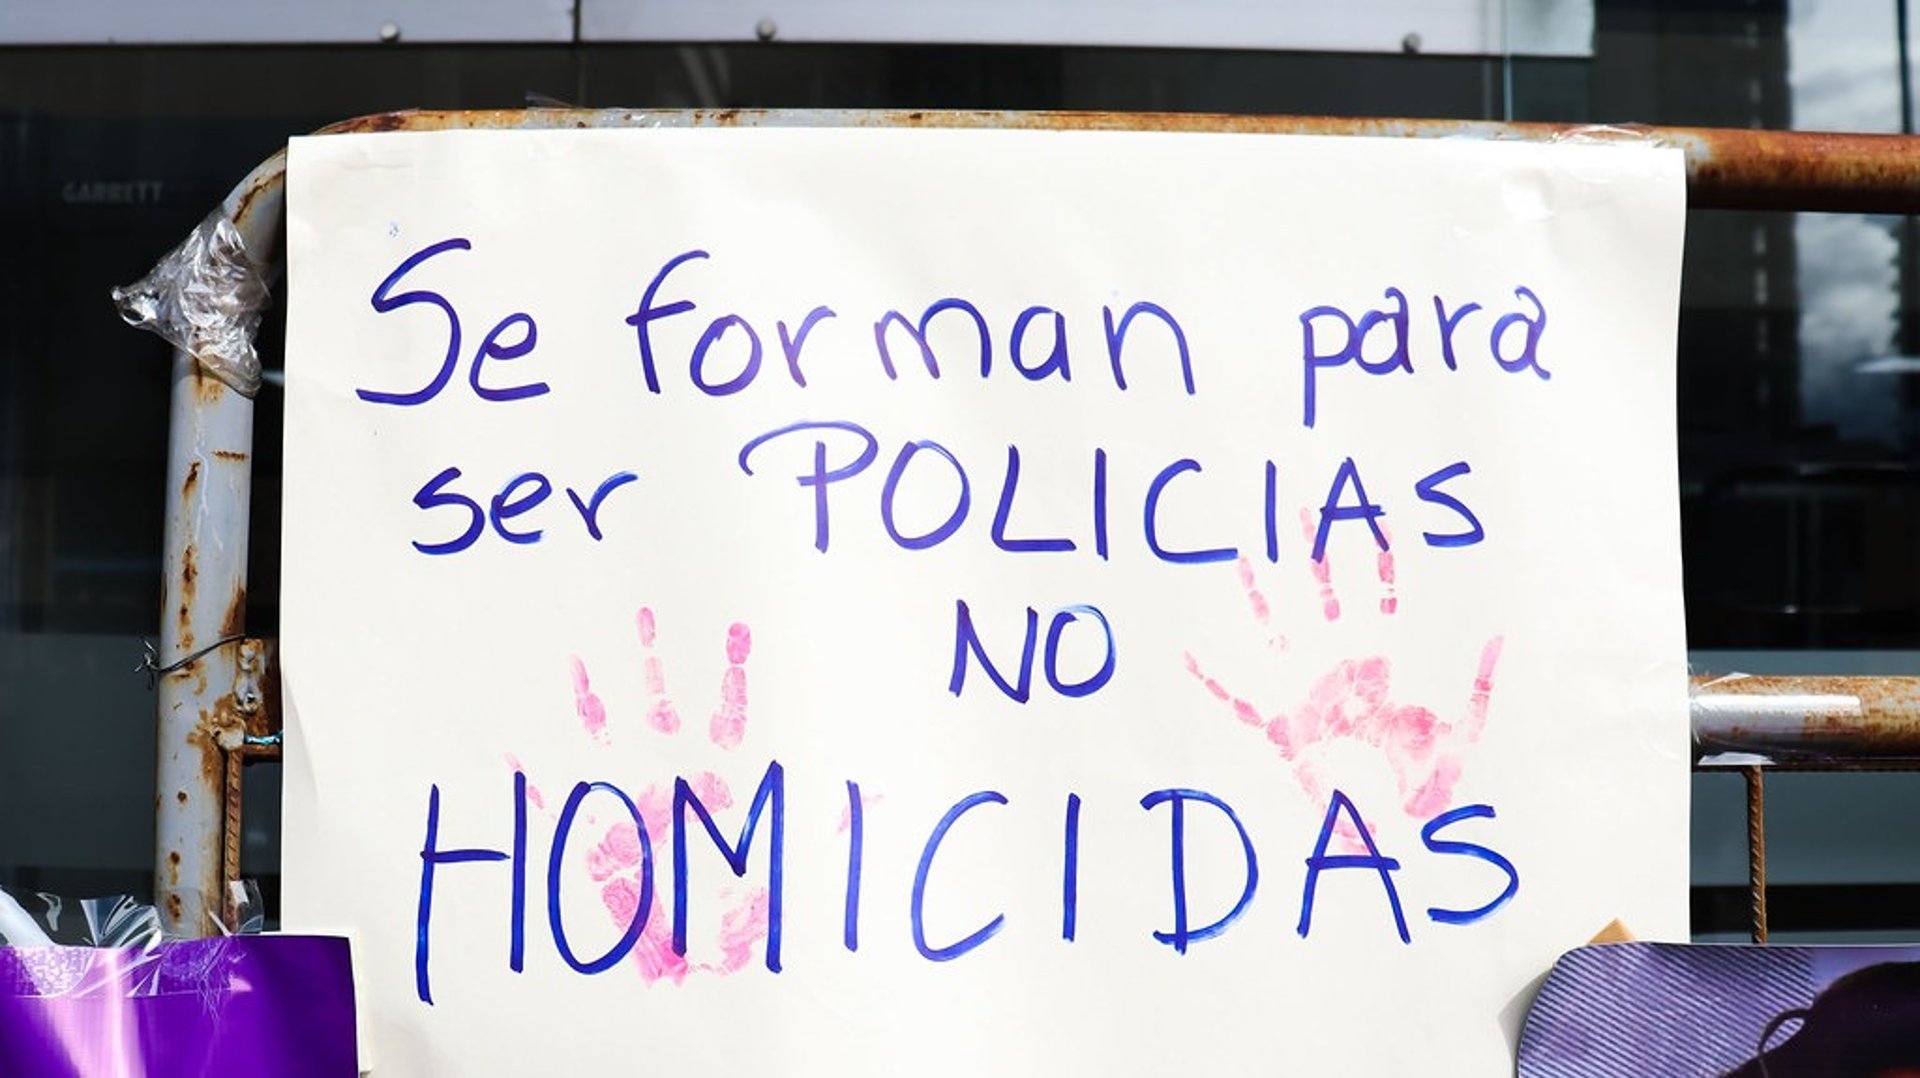 GARRETT
Se forman para
ser POLICIAS
NO
HOMICIDAS